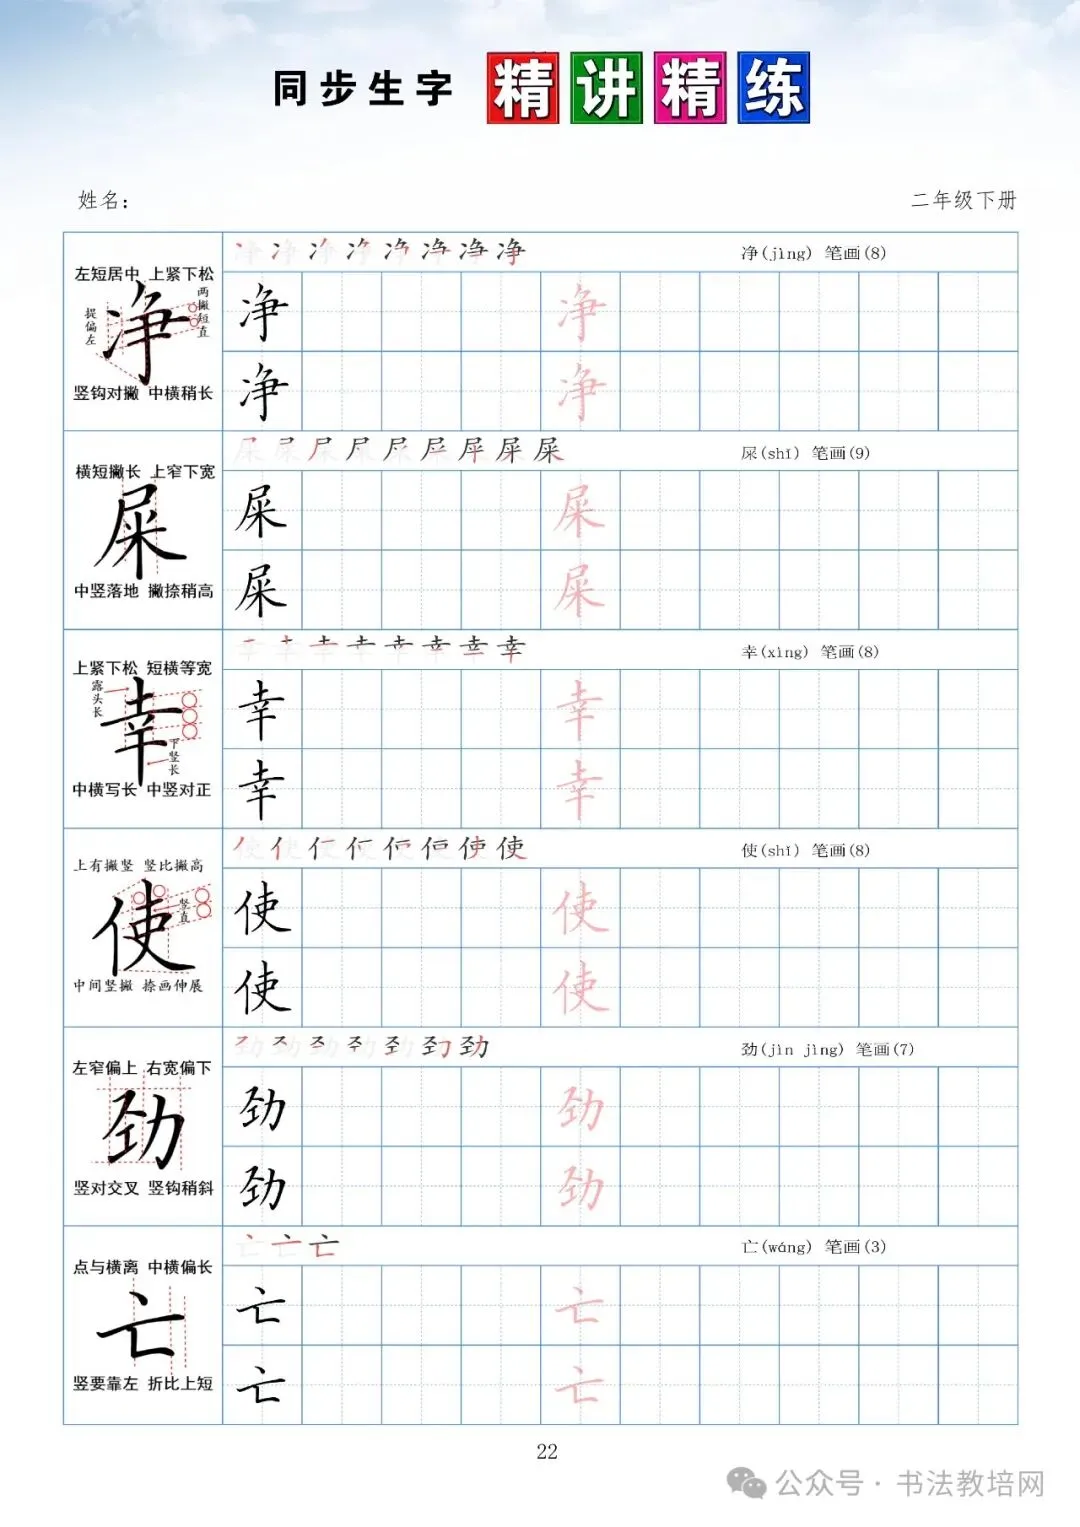 同步生字 精讲精练
姓名：
二年级下册
净(jìng) 笔画(8)
左短居中 上紧下松
两撇短直
提偏左
净
竖钩对撇 中横稍长
净 净
净 净
屎(shǐ) 笔画(9)
横短撇长 上窄下宽
屎
中竖落地 撇捺稍高
屎 屎
屎 屎
幸(xìng) 笔画(8)
上紧下松 短横等宽
露头长
幸
下竖长
中横写长 中竖对正
幸 幸
幸 幸
使(shǐ) 笔画(8)
上有撇竖 竖比撇高
竖直
使
中间竖撇 捺画伸展
使 使
使 使
劲(jìn jìng) 笔画(7)
左窄偏上 右宽偏下
劲
竖对交叉 竖钩稍斜
劲 劲
劲 劲
亡(wáng) 笔画(3)
点与横离 中横偏长
亡
竖要靠左 折比上短
亡 亡
亡 亡
22
公众号·书法教培网